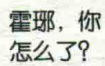 霍琊，你
怎么了？